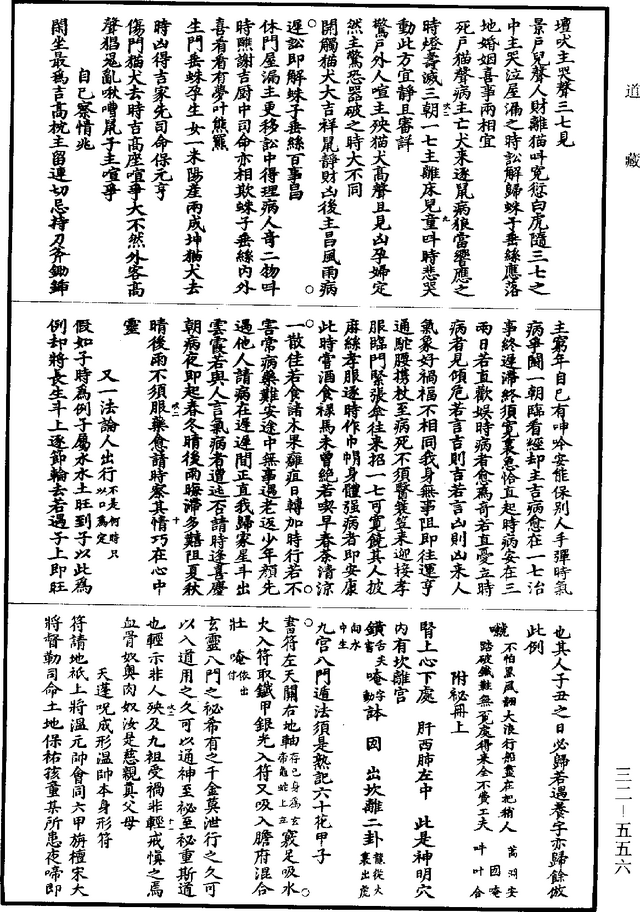 道藏
壇吠主哭聲三七見
景戶兒聲人財離猫呌寃愆白虎隨三七之
中主哭泣屋漏之時訟解歸蛛子垂絲應落
地婚姻喜事兩相宜
死戶猫聲病主亡犬來逐鼠病狼當響應之
時燈壽滅三朝一七主離床兒童呌時悲哭
動此方宜靜且審詳
驚戶外人喧主殃猫犬高聲且見凶孕婦定
然主驚恐器破之時大不同
開觸猫犬大吉祥鼠靜財凶後主昌風雨病
遲訟即解蛛子垂絲百事昌
休門屋漏主更移訟中得理病人奇二物呌
時瞧謝吉厨中司命亦相欺蛛子垂絲內外
喜看看有夢叶熊羆
生門垂蛛孕生女一未陽產兩成坤猫犬去
時凶得吉家先司命保元亨
傷門猫犬去時吉高座喧爭大不然外客高
聲猖寃亂啾嘈鼠子主喧爭
自己察情兆
閑坐最爲吉高枕主留連切忌持刀斧鋤鈰
主窮年自己有呻吟安能保別人手彈時氣
病爭鬭一朝臨看經却主吉病愈在一七治
事終遲滯終須寬裏急恰直起時病安在三
兩日若直歡娛時病者愈爲奇若直憂立時
病者見傾危若言吉則吉若言凶則凶來人
氣象好禍福不相同我身無事阻即往運亨
通駝腰携杖至病死不須醫簑笠來迎接孝
服臨門緊張傘往來招一七可寬饒其人披
麻絲孝服逐時作巾帽身體强病者即安康
此時嘗酒食祿馬未曾絶若喫早春茶清涼
一散佳若食諸木果癰疽日轉加時行若不
害常病藥難安途中無事遇老返少年顏先
遇他人請病在遲遲間正直我歸家星斗出
雲霄若與人言氣病者遭迍否請時逢喜慶
朝病夜即起春冬晴後兩晦滯多囏阻夏秋
晴後雨不須服藥愈請時察其情巧在心中
靈
又一法論人出行不是何時只以口爲定
假如子時爲例子屬水水土旺到子以此爲
例却將長生斗上逐節輪去若遇子上即旺
也其人子丑之日必歸若遇養字亦歸餘倣
此例
不怕黑風翻大浪行船盡在把梢人
踏破鐵鞋無覓處得來全不費工夫
附祕冊上
腎上心下處 肝西肺左中 此是神明穴
內有坎離宮
出坎離二卦
九宮八門遁法須是熟記六十花甲子
書符左天關右地軸
火入符取鐵甲銀光入符又吸入膽府混合
玄靈八門之祕希有之千金莫泄行之久可
以入道用之久可以通神至祕至祕重斯道
也輕示非人殃及九祖受禍非輕戒慎之焉
血骨奴奥肉奴汝是慈親真父母
天蓬呪成形溫帥本身形符
符請地祇上將溫元帥會同六甲旃檀宋大
將督勒司命土地保祐孩童某所患夜啼即
三二—五五六